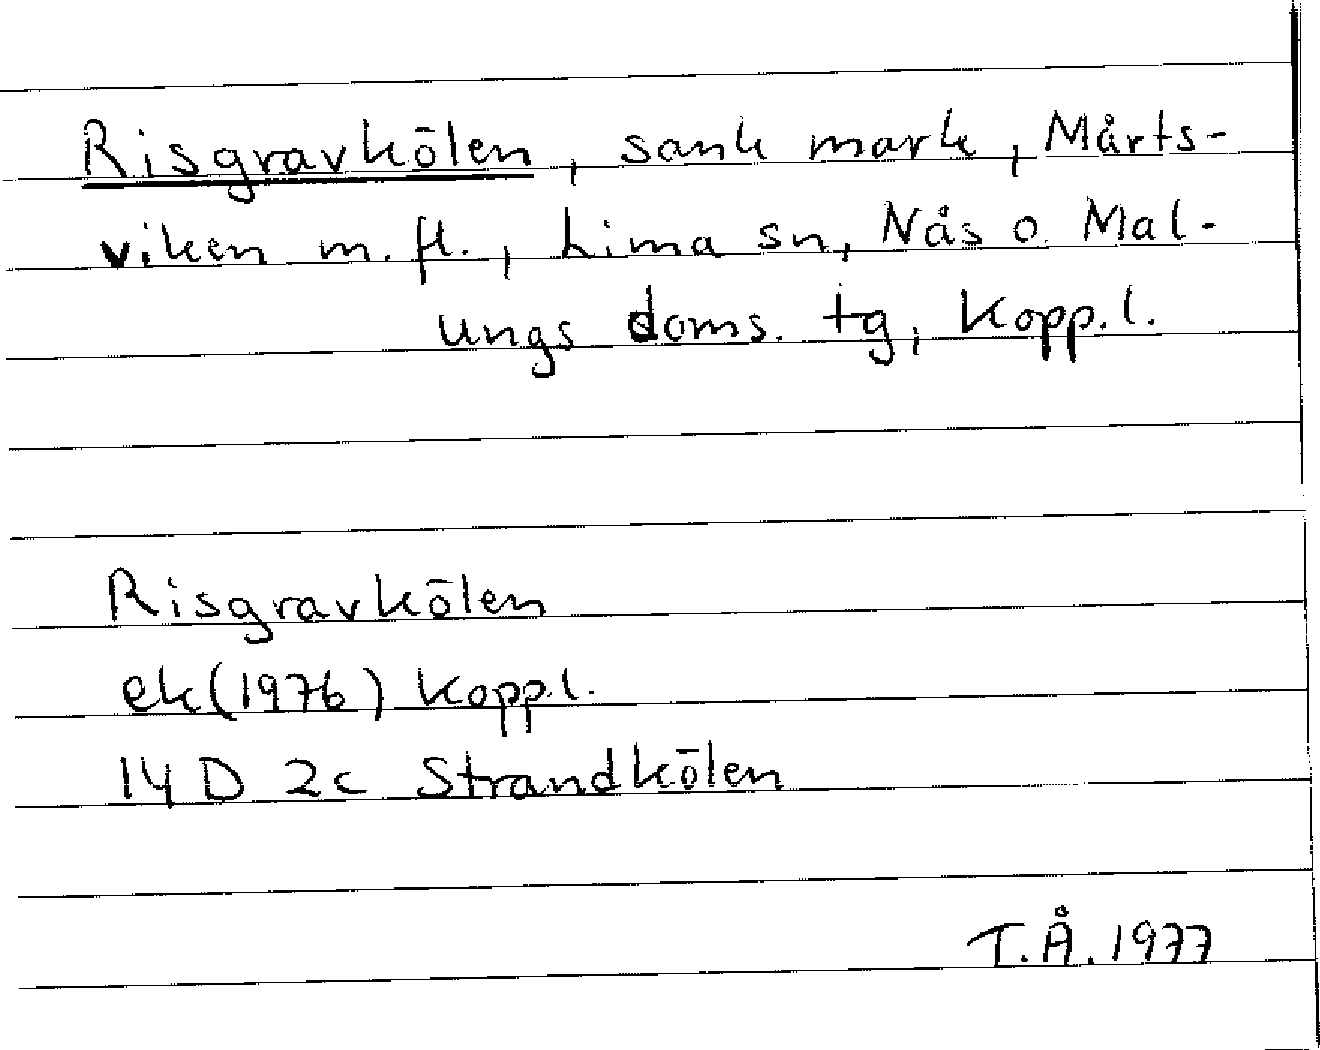 Risgravkölen, sank mark, Mårts-
viken m. fl., Lima sn, Nås o. Mal-
ungs doms. tg, Kopp. l.
Risgravkölen
ek (1976) Kopp. l.
14 D 2c Strandkölen
T. Å. 1977